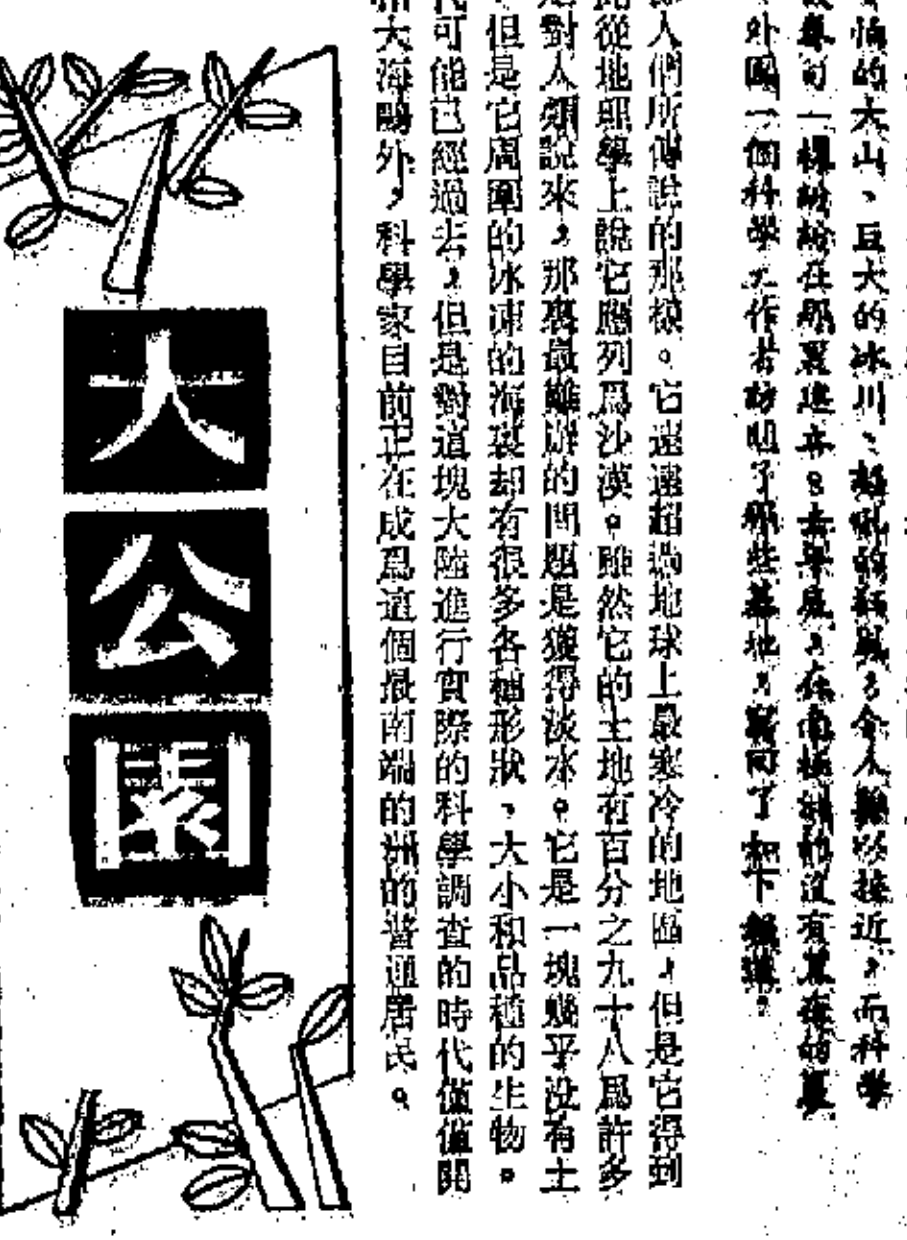 怕的大山、巨大的冰川、怒吼的狂風，令人難以接近，而科學
一樣紛紛在那裏進去。去年底，在南極洲的沒有黑夜的夏
外國一個科學工作者訪問了那些基地，寫回了如下報道。
人們所傳說的那樣。它遠遠超過地球上最寒冷的地區，但是它得到
從地理學上說它應列爲沙漠。雖然它的土地有百分之九十八爲許多
對人類說來，那裏最難辦的問題是獲得淡水。它是一塊幾乎沒有土
但是它周圍的冰凍的海裏却有很多各種形狀、大小和品種的生物。
可能已經過去，但是對這塊大陸進行實際的科學調查的時代僅僅開
大海鷗外，科學家目前正在成爲這個最南端的洲的普通居民。
大公園